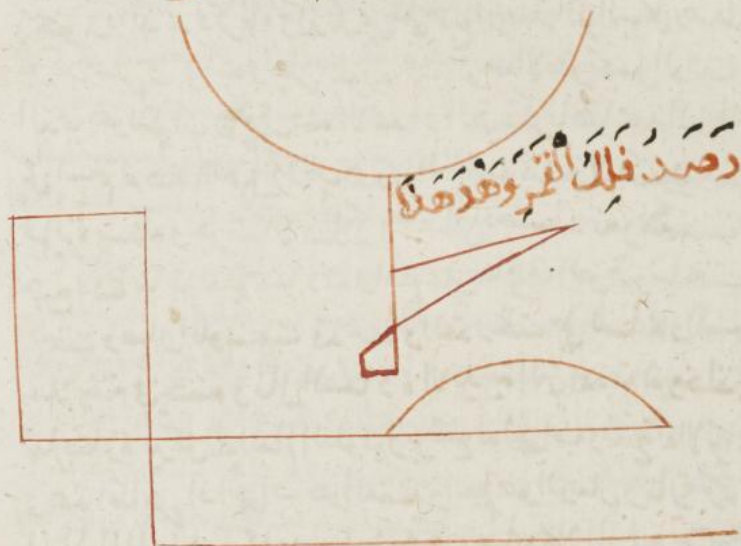 رَصَدُ فَلَكِ الْقَمَرِ وَهُوَ هَذَا